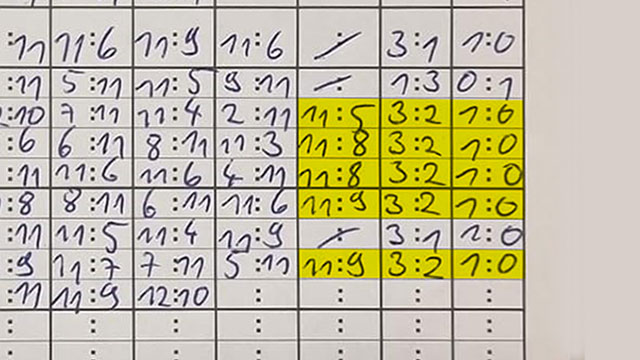 :11 11:6 11:9 11:6 : 3:1 1:0
:11 5:11 11:5 9:11 : 1:3 0:1
:10 7:11 11:4 2:11 11:5 3:2 1:0
:6 6:11 8:11 11:3 11:8 3:2 1:0
:11 11:6 11:6 4:11 11:8 3:2 1:0
:8 8:11 6:11 11:6 11:9 3:2 1:0
:11 11:5 11:4 11:9 : 3:1 1:0
:9 11:7 7:11 5:11 11:9 3:2 1:0
:11 11:9 12:10 : : : :
: : : : : :
: : : : : :